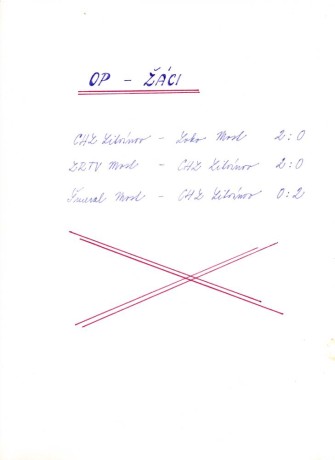 OP - ŽÁCI
CHZ Litvínov - Loko Most 2:0
ZRTV Most - CHZ Litvínov 2:0
Funeral Most - CHZ Litvínov 0:2